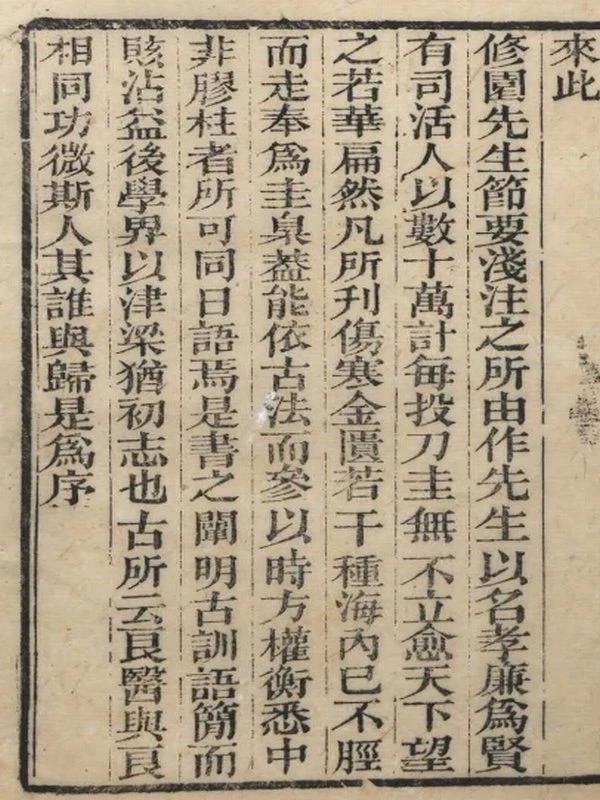 來此
修園先生節要淺注之所由作先生以名孝廉爲賢
有司活人以數十萬計每投刀圭無不立愈天下望
之若華扁然凡所刊傷寒金匱若干種海內已不脛
而走奉爲圭臬葢能依古法而參以時方權衡悉中
非膠柱者所可同日語焉是書之闡明古訓語簡而
賅沾益後學界以津梁猶初志也古所云良醫與良
相同功微斯人其誰與歸是爲序